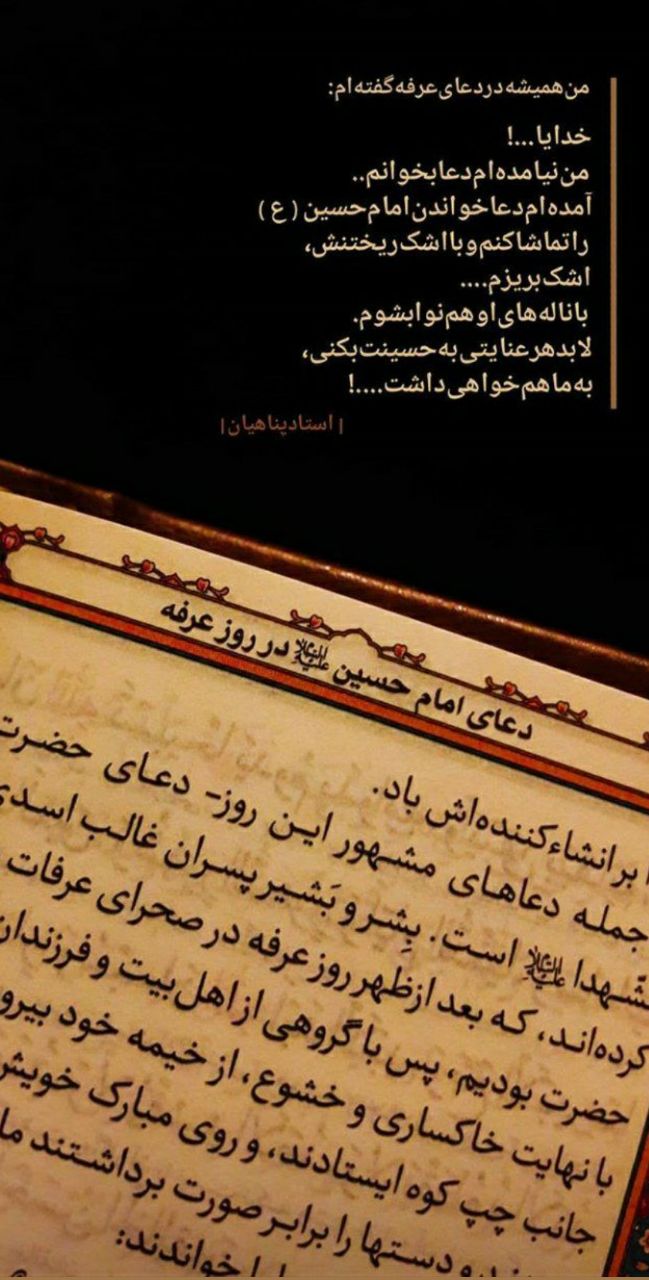 من همیشه در دعای عرفه گفته ام:
خدایا...!
من نیامده ام دعا بخوانم..
آمده ام دعا خواندن امام حسین ( ع )
را تماشا کنم و با اشک ریختنش،
اشک بریزم....
با ناله های او هم نوا بشوم.
لابد هر عنایتی به حسینت بکنی،
به ما هم خواهی داشت....!
| استاد پناهیان |
دعای امام حسین علیه‌السلام در روز عرفه
بر انشاءکننده‌اش باد.
جمله دعاهای مشهور این روز- دعای حضرت
است. بِشر و بَشیر پسران غالب اسدی
کرده‌اند، که بعد از ظهر روز عرفه در صحرای عرفات
حضرت بودیم، پس با گروهی از اهل بیت و فرزندان
با نهایت خاکساری و خشوع، از خیمه خود
جانب چپ کوه ایستادند، و روی مبارک خویش
و دستها را برابر صورت برداشتند
خواندند: